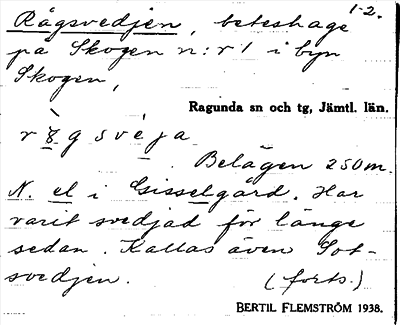 1-2.
Rågsvedjen, beteshage
på Skogen n:r 1 i byn
Skogen,
Ragunda sn och tg, Jämtl. län.
Belägen 250 m.
N. el i Gisselgård. Har
varit svedjad för länge
sedan. Kallas även Sot-
svedjen. (forts.)
BERTIL FLEMSTRÖM 1938.